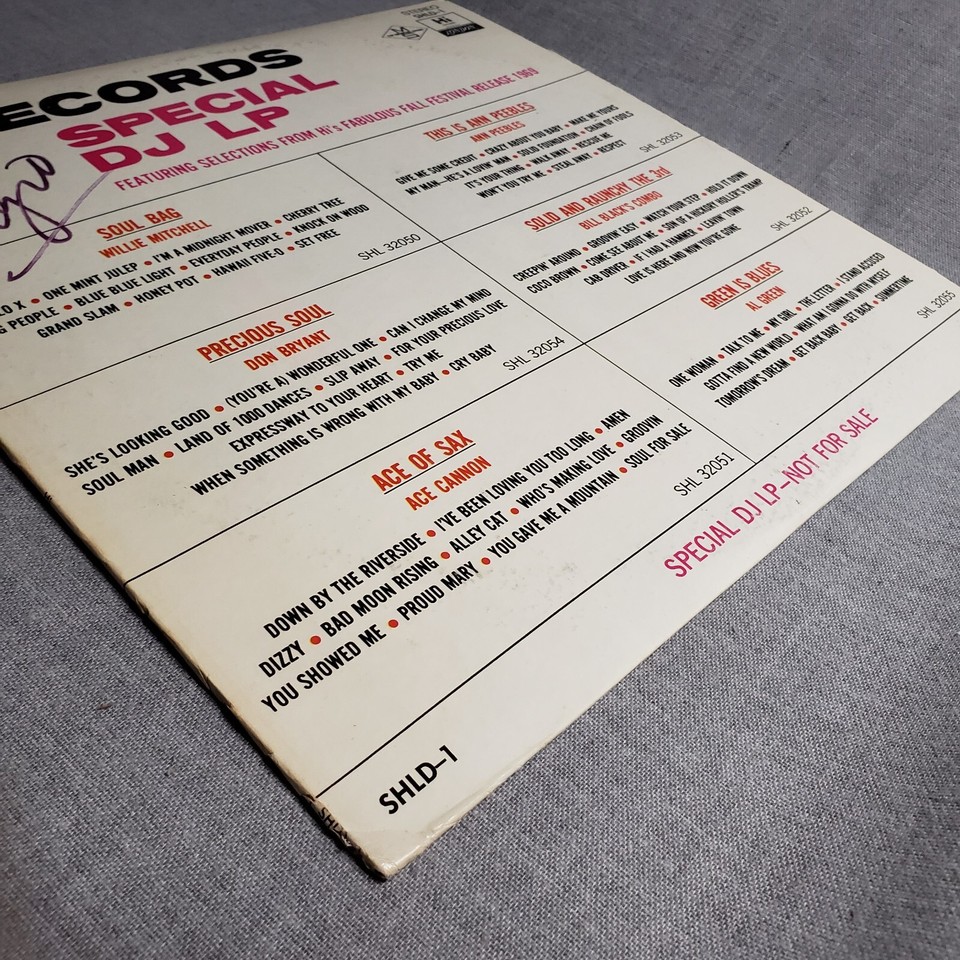 ECORDS
SPECIAL
DJ LP
FEATURING SELECTIONS FROM Hi's FABULOUS FALL FESTIVAL RELEASE 1969
STEREO
SHLD-1
Hi
LONDON
SOUL BAG
WILLIE MITCHELL
O X • ONE MINT JULEP • I'M A MIDNIGHT MOVER • CHERRY TREE
PEOPLE • BLUE BLUE LIGHT • EVERYDAY PEOPLE • KNOCK ON WOOD
GRAND SLAM • HONEY POT • HAWAII FIVE-O • SET FREE
SHL 32050
THIS IS ANN PEEBLES
ANN PEEBLES
GIVE ME SOME CREDIT • CRAZY ABOUT YOU BABY • MAKE ME YOURS
MY MAN—HE'S A LOVIN' MAN • SOLID FOUNDATION • CHAIN OF FOOLS
IT'S YOUR THING • WALK AWAY • RESCUE ME
WON'T YOU TRY ME • STEAL AWAY • RESPECT
SHL 32053
PRECIOUS SOUL
DON BRYANT
SHE'S LOOKING GOOD • (YOU'RE A) WONDERFUL ONE • CAN I CHANGE MY MIND
SOUL MAN • LAND OF 1000 DANCES • SLIP AWAY • FOR YOUR PRECIOUS LOVE
EXPRESSWAY TO YOUR HEART • TRY ME
WHEN SOMETHING IS WRONG WITH MY BABY • CRY BABY
SHL 32054
SOLID AND RAUNCHY THE 3rd
BILL BLACK'S COMBO
CREEPIN' AROUND • GROOVIN' EASY • WATCH YOUR STEP • HOLD IT DOWN
COCO BROWN • COME SEE ABOUT ME • SON OF A HICKORY HOLLER'S TRAMP
CAB DRIVER • IF I HAD A HAMMER • LEAVIN' TOWN
LOVE IS HERE AND NOW YOU'RE GONE
SHL 32052
ACE OF SAX
ACE CANNON
DOWN BY THE RIVERSIDE • I'VE BEEN LOVING YOU TOO LONG • AMEN
DIZZY • BAD MOON RISING • ALLEY CAT • WHO'S MAKING LOVE • GROOVIN
YOU SHOWED ME • PROUD MARY • YOU GAVE ME A MOUNTAIN • SOUL FOR SALE
SHL 32051
GREEN IS BLUES
AL GREEN
ONE WOMAN • TALK TO ME • MY GIRL • THE LETTER • I STAND ACCUSED
GOTTA FIND A NEW WORLD • WHAT AM I GONNA DO WITH MYSELF
TOMORROW'S DREAM • GET BACK BABY • GET BACK • SUMMERTIME
SHL 32055
SPECIAL DJ LP—NOT FOR SALE
SHLD-1